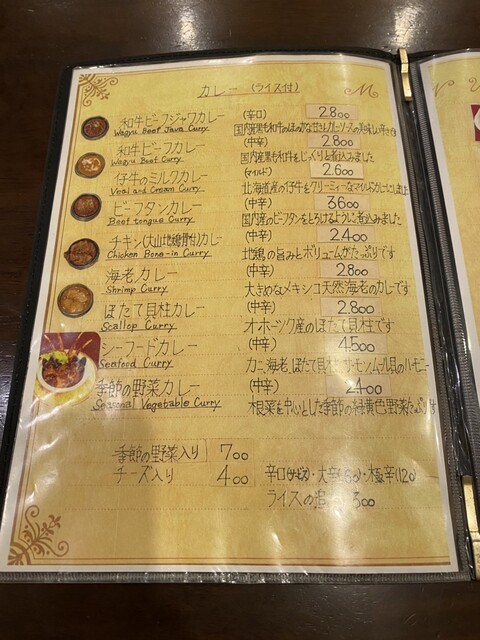 カレー (ライス付)
和牛ビーフジャワカレー (辛口) 2.800
Wagyu Beef Java Curry 国内産黒毛和牛のほのかな甘さと
和牛ビーフカレー (中辛) 2.800
Wagyu Beef Curry 国内産黒毛和牛をじっくりと煮込みました
仔牛のミルクカレー (マイルド) 2.600
Veal and Cream Curry 北海道産の仔牛をクリーミーなマイルドカレーにしました
ビーフタンカレー (中辛) 3600
Beef tongue Curry 国内産のビーフタンをとろけるように煮込みました
チキン(大山地鶏骨付)カレー (中辛) 2400
Chicken Bone-in Curry 地鶏の旨みとボリュームがたっぷりです
海老カレー (中辛) 2.800
Shrimp Curry 大きめなメキシコ天然海老のカレーです
ほたて貝柱カレー (中辛) 2.800
Scallop Curry オホーツク産のほたて貝柱です
シーフードカレー (中辛) 4.500
Seafood Curry カニ、海老、ほたて貝柱、サーモン、ムール貝のハーモニー
季節の野菜カレー (中辛) 2400
Seasonal Vegetable Curry 根菜を中心とした季節の緑黄色野菜たっぷりです
季節の野菜入り 700
チーズ入り 400
辛口(サービス)・大辛(60)・極辛(120)
ライスの追 300